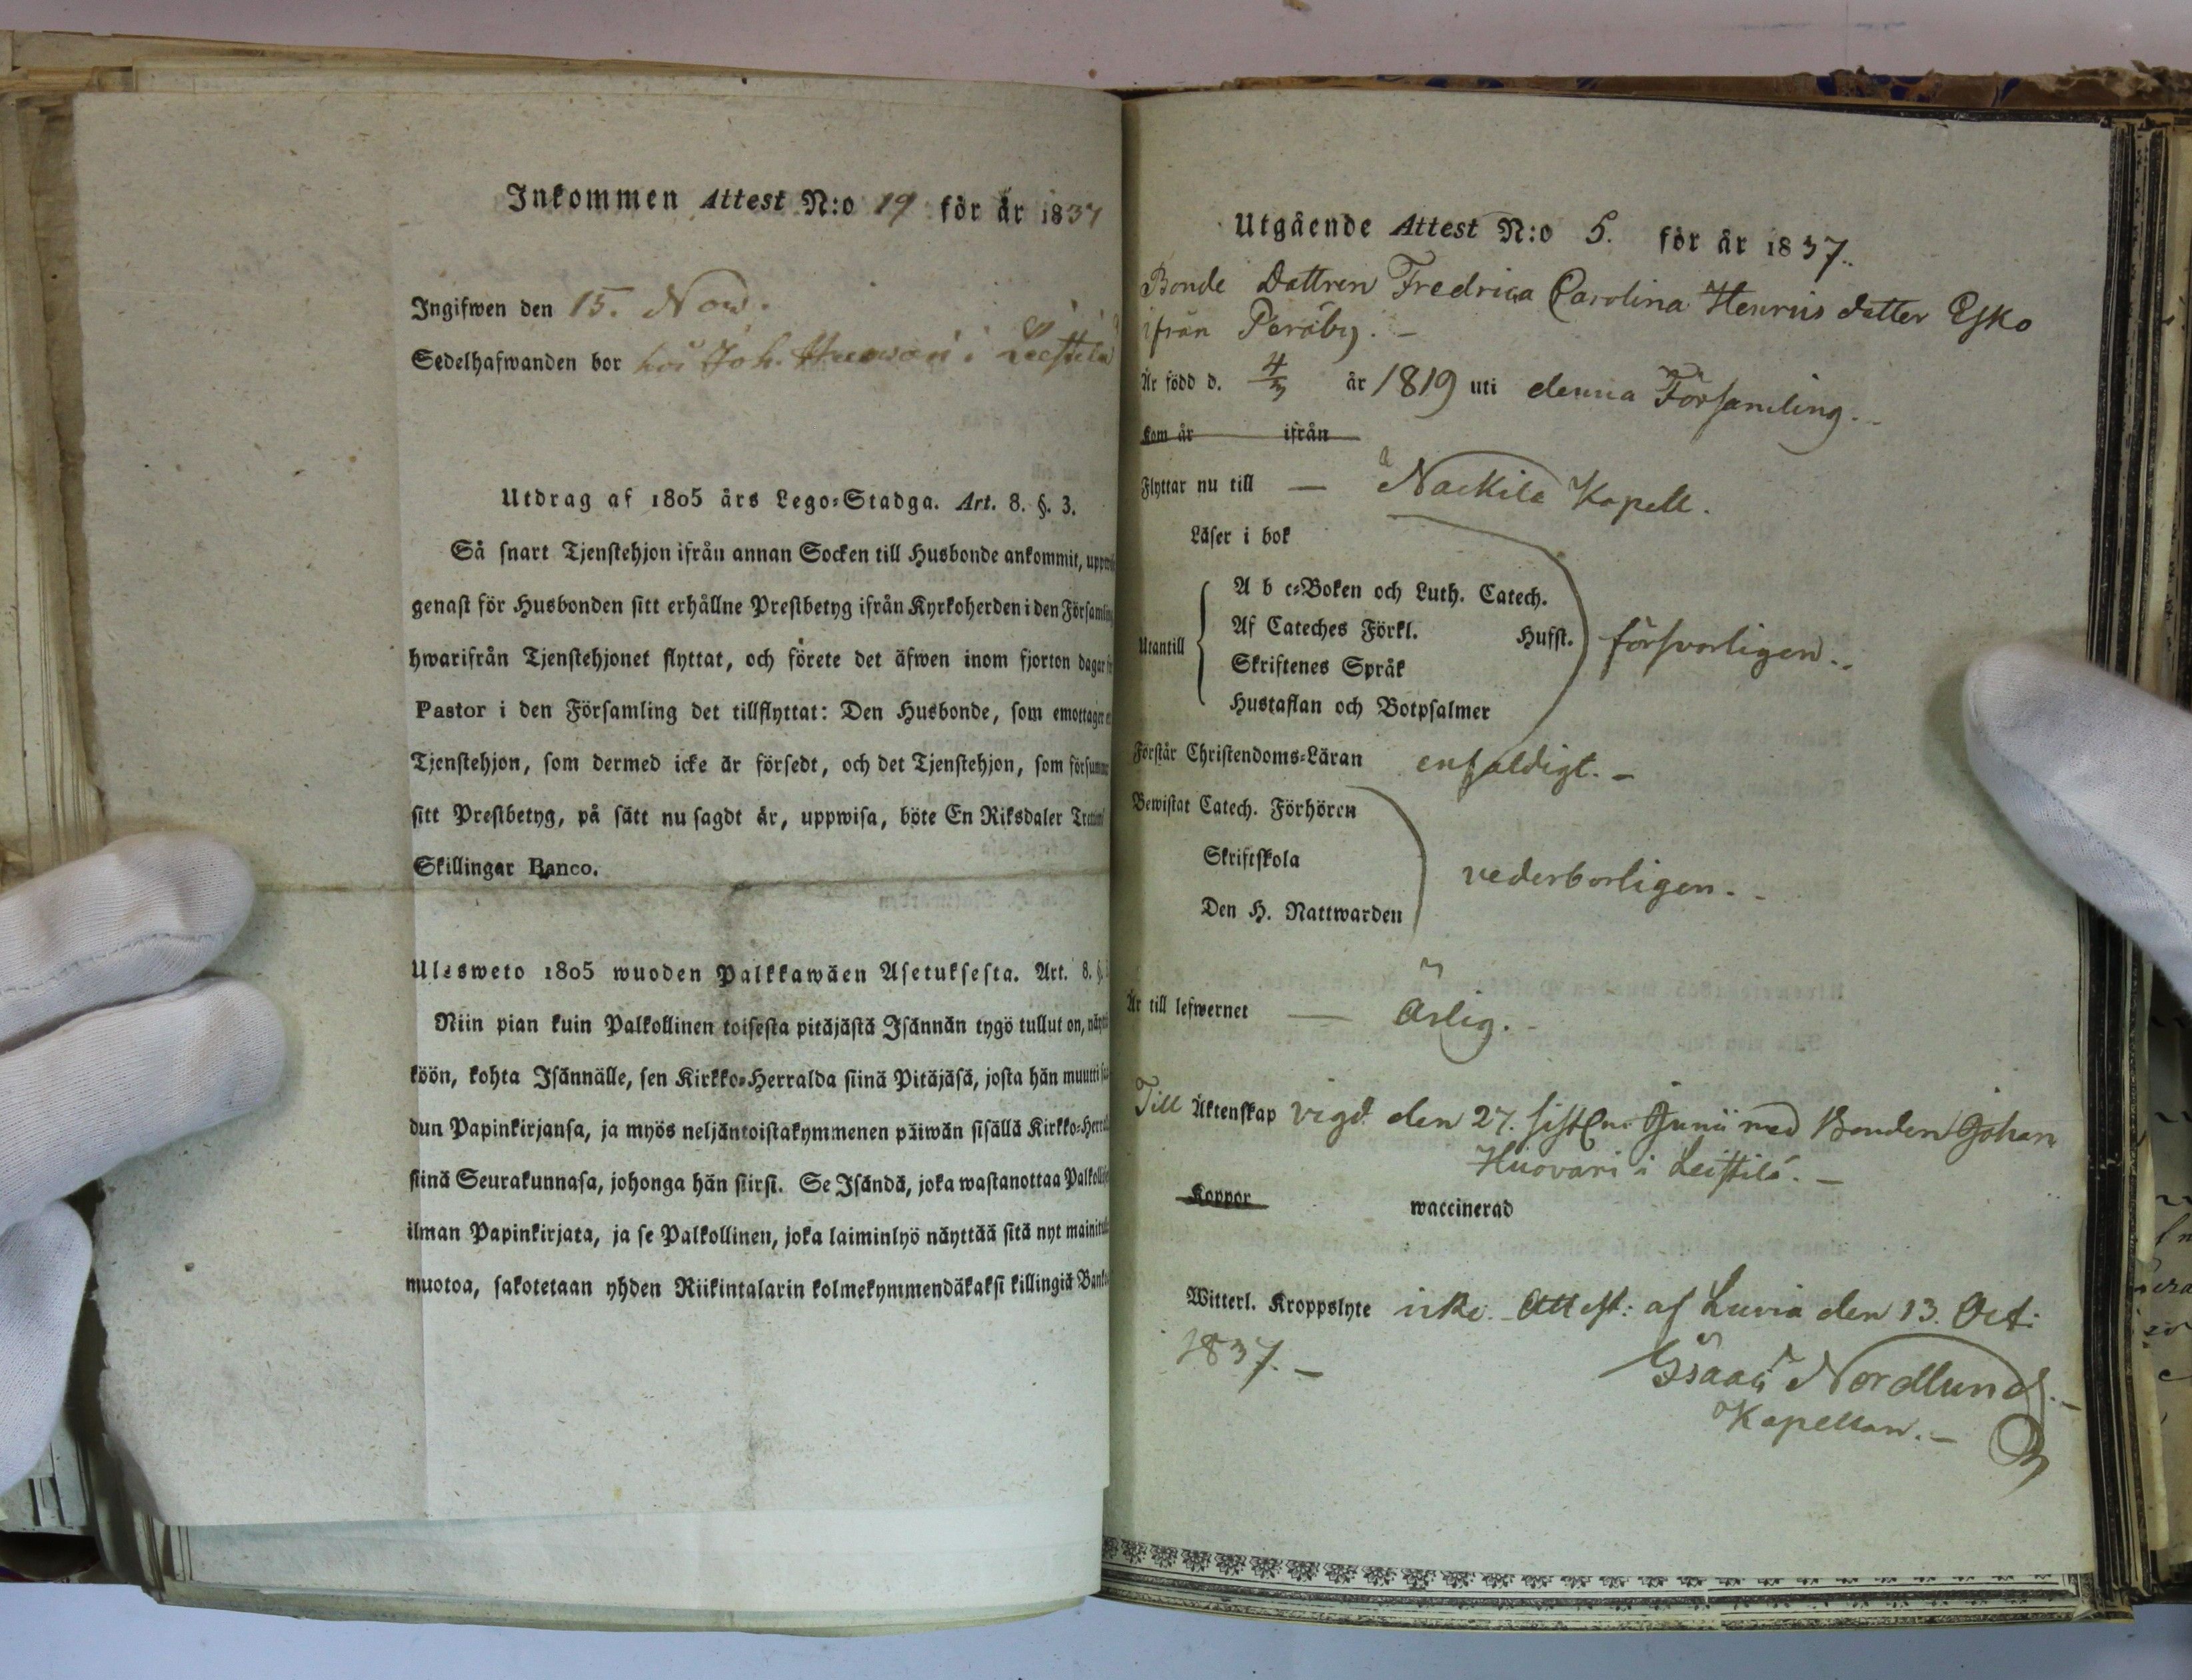 Inkommen Attest N:o 19 för år 1837
Ingifwen den 15. Nov.
Sedelhafwanden bor hos Joh. Huovari i Leistilä
Utdrag af 1805 års Lego-Stadga. Art. 8. §. 3.
Så snart Tjenstehjon ifrån annan Socken till Husbonde ankommit, uppwi
genast för Husbonden sitt erhållne Prestbetyg ifrån Kyrkoherden i den Församling
hwarifrån Tjenstehjonet flyttat, och förete det äfwen inom fjorton dagar
Pastor i den Församling det tillflyttat: Den Husbonde, som emottager
Tjenstehjon, som dermed icke är försedt, och det Tjenstehjon, som försummar
sitt Prestbetyg, på sätt nu sagdt är, uppwisa, böte En Riksdaler
Skillingar Banco.
Ulosweto 1805 wuoden Palkkawäen Asetuksesta. Art. 8. §.
Niin pian kuin Palkollinen toisesta pitäjästä Isännän tygö tullut on, näyttä
köön, kohta Isännälle, sen Kirkko-Herralda siinä Pitäjäsä, josta hän muutti saa
dun Papinkirjansa, ja myös neljäntoistakymmenen päiwän sisällä Kirkko-Herralle
siinä Seurakunnasa, johonga hän siirsi. Se Isändä, joka wastanottaa Palkollisen
ilman Papinkirjata, ja se Palkollinen, joka laiminlyö näyttää sitä nyt mainitulla
muotoa, sakotetaan yhden Riikintalarin kolmekymmendäkaksi killingiä Banko
Utgående Attest N:o 5. för år 1837.
Bonde Dottren Fredrica Carolina Henrics dotter Esko
ifrån Peräby. –
Är född d. 4/3 år 1819 uti denna Församling. –
Kom år ifrån
Flyttar nu till — Nackila Kapell.
Läser i bok
Utantill
A b c-Boken och Luth. Catech.
Af Cateches Förkl. Hufst.
Skriftenes Språk
Hustaflan och Botpsalmer
försvarligen. –
Förstår Christendoms-Läran enfaldigt. –
Bewistat Catech. Förhören
Skriftskola
Den H. Nattwarden
vederborligen. –
Är till lefwernet — Ärlig. –
Till Äktenskap vigd den 27. sistl. Junii med Bonden Johan
Huovari i Leistilä. –
Koppor waccinerad
Witterl. Kroppslyte icke. Attest: af Luvia den 13. Oct:
1837. –
Isaac Nordlund. –
Kapellan. –